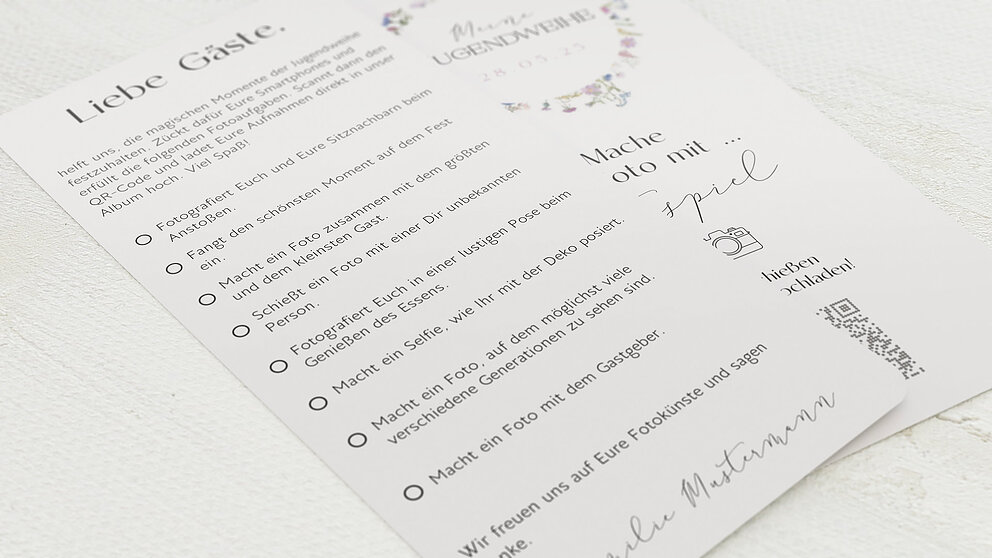 Liebe Gäste,
helft uns, die magischen Momente der Jugendweihe
festzuhalten. Zückt dafür Eure Smartphones und
erfüllt die folgenden Fotoaufgaben. Scannt dann den
QR-Code und ladet Eure Aufnahmen direkt in unser
Album hoch. Viel Spaß!
Fotografiert Euch und Eure Sitznachbarn beim
Anstoßen.
Fangt den schönsten Moment auf dem Fest
ein.
Macht ein Foto zusammen mit dem größten
und dem kleinsten Gast.
Schießt ein Foto mit einer Dir unbekannten
Person.
Fotografiert Euch in einer lustigen Pose beim
Genießen des Essens.
Macht ein Selfie, wie Ihr mit der Deko posiert.
Macht ein Foto, auf dem möglichst viele
verschiedene Generationen zu sehen sind.
Macht ein Foto mit dem Gastgeber.
Wir freuen uns auf Eure Fotokünste und sagen
nke.
ilie Mustermann
Meine
UGENDWEIHE
28.05.25
Mache
oto mit ...
spiel
hießen
ochladen!